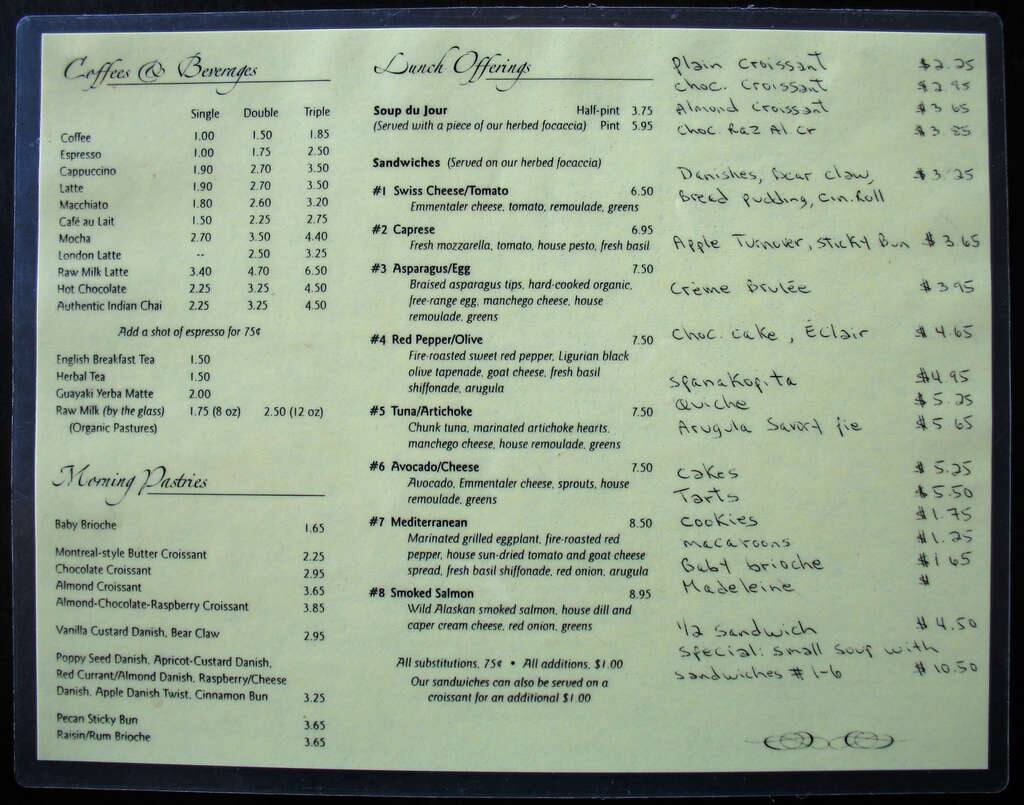 Coffees & Beverages
Single Double Triple
Coffee 1.00 1.50 1.85
Espresso 1.00 1.75 2.50
Cappuccino 1.90 2.70 3.50
Latte 1.90 2.70 3.50
Macchiato 1.80 2.60 3.20
Café au Lait 1.50 2.25 2.75
Mocha 2.70 3.50 4.40
London Latte -- 2.50 3.25
Raw Milk Latte 3.40 4.70 6.50
Hot Chocolate 2.25 3.25 4.50
Authentic Indian Chai 2.25 3.25 4.50
Add a shot of espresso for 75¢
English Breakfast Tea 1.50
Herbal Tea 1.50
Guayaki Yerba Matte 2.00
Raw Milk (by the glass) 1.75 (8 oz) 2.50 (12 oz)
(Organic Pastures)
Morning Pastries
Baby Brioche 1.65
Montreal-style Butter Croissant 2.25
Chocolate Croissant 2.95
Almond Croissant 3.65
Almond-Chocolate-Raspberry Croissant 3.85
Vanilla Custard Danish, Bear Claw 2.95
Poppy Seed Danish, Apricot-Custard Danish,
Red Currant/Almond Danish, Raspberry/Cheese
Danish, Apple Danish Twist, Cinnamon Bun 3.25
Pecan Sticky Bun 3.65
Raisin/Rum Brioche 3.65
Lunch Offerings
Soup du Jour Half-pint 3.75
(Served with a piece of our herbed focaccia) Pint 5.95
Sandwiches (Served on our herbed focaccia)
#1 Swiss Cheese/Tomato 6.50
Emmentaler cheese, tomato, remoulade, greens
#2 Caprese 6.95
Fresh mozzarella, tomato, house pesto, fresh basil
#3 Asparagus/Egg 7.50
Braised asparagus tips, hard-cooked organic,
free-range egg, manchego cheese, house
remoulade, greens
#4 Red Pepper/Olive 7.50
Fire-roasted sweet red pepper, Ligurian black
olive tapenade, goat cheese, fresh basil
shiffonade, arugula
#5 Tuna/Artichoke 7.50
Chunk tuna, marinated artichoke hearts,
manchego cheese, house remoulade, greens
#6 Avocado/Cheese 7.50
Avocado, Emmentaler cheese, sprouts, house
remoulade, greens
#7 Mediterranean 8.50
Marinated grilled eggplant, fire-roasted red
pepper, house sun-dried tomato and goat cheese
spread, fresh basil shiffonade, red onion, arugula
#8 Smoked Salmon 8.95
Wild Alaskan smoked salmon, house dill and
caper cream cheese, red onion, greens
All substitutions, 75¢ • All additions, $1.00
Our sandwiches can also be served on a
croissant for an additional $1.00
Plain Croissant $2.25
Choc. Croissant $2.95
Almond Croissant $3.65
Choc Raz Al Cr $3.85
Danishes, Bear claw, $3.25
Bread pudding, Cin. Roll
Apple Turnover, Sticky Bun $3.65
Crème Brulée $3.95
Choc. Cake, Éclair $4.65
Spanakopita $4.95
Quiche $5.25
Arugula Savory Pie $5.65
Cakes $5.25
Tarts $5.50
Cookies $1.75
Macaroons $1.25
Baby brioche $1.65
Madeleine $
1/2 Sandwich $4.50
Special: small soup with
sandwiches #1-6 $10.50